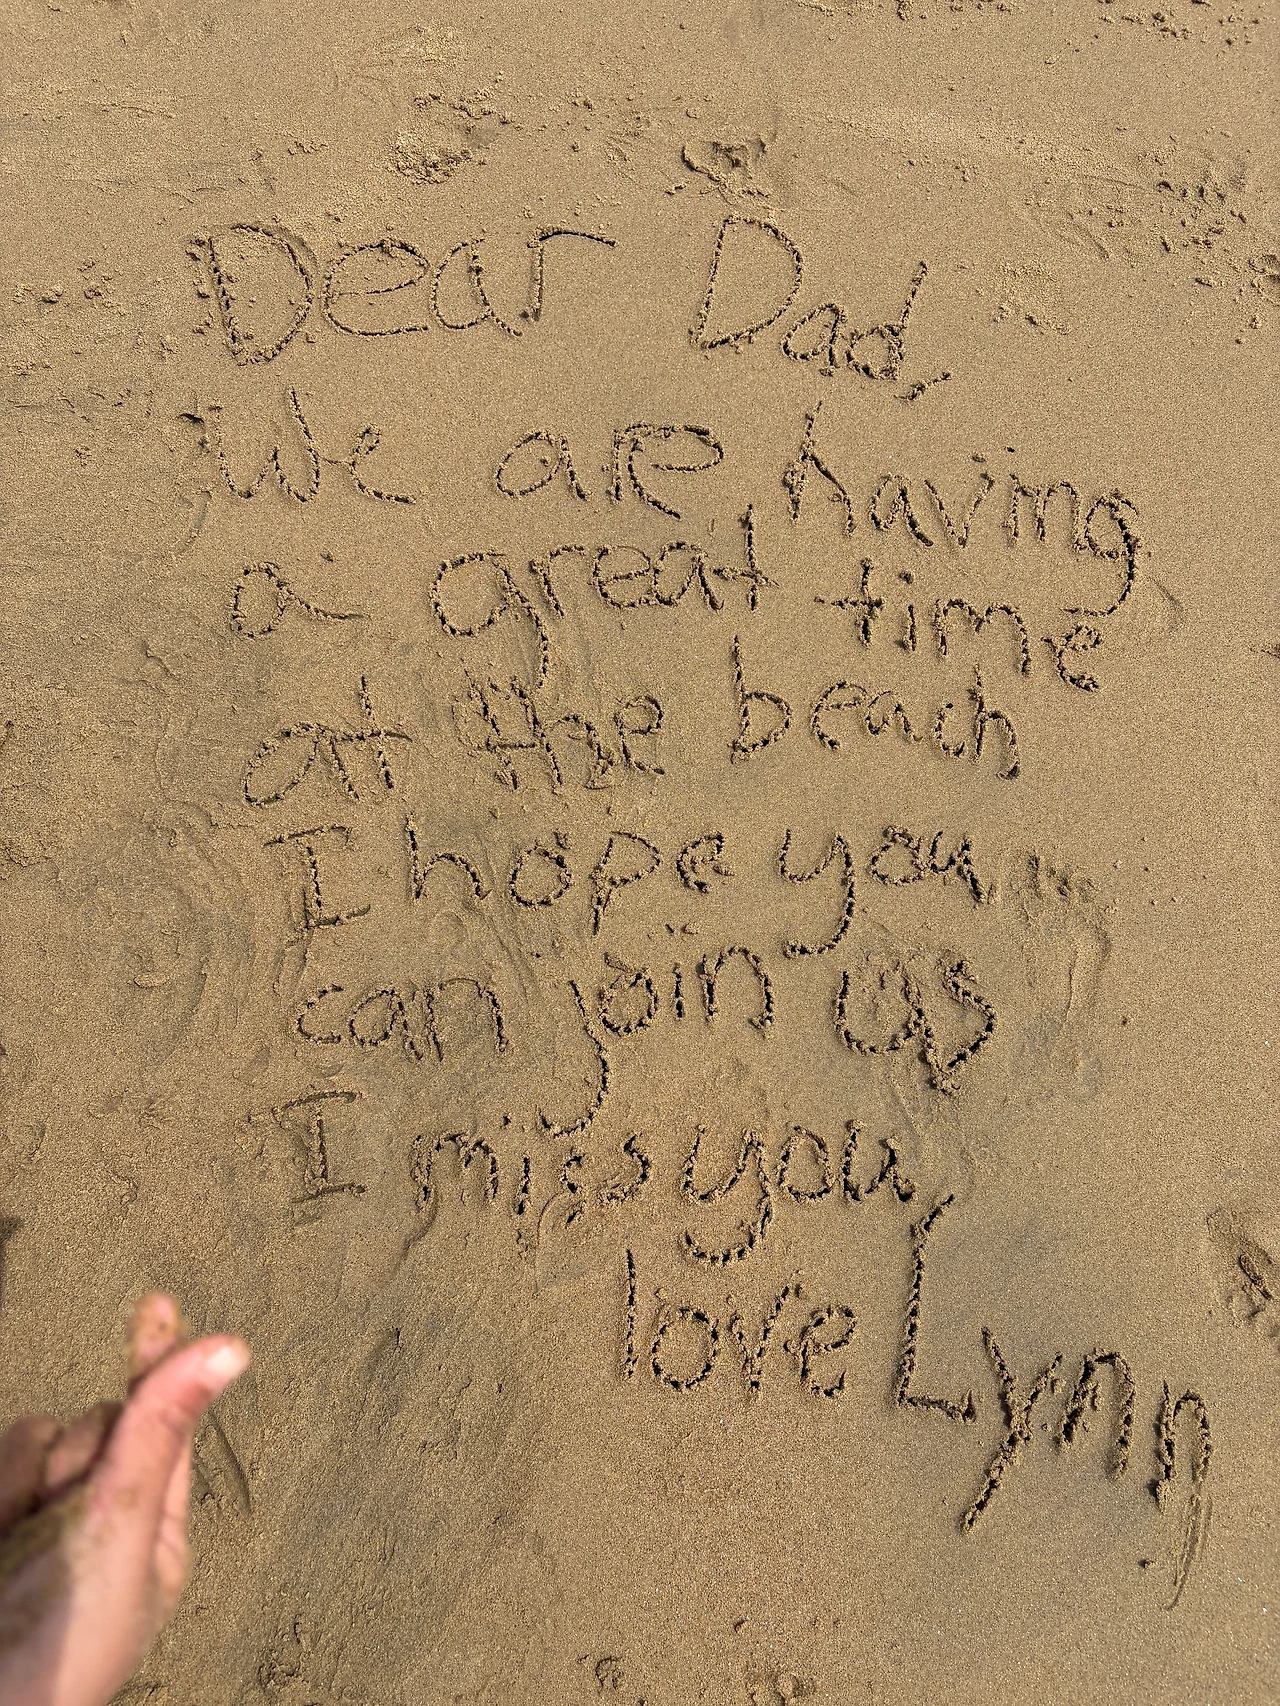 Dear Dad,
We are having
a great time
at the beach
I hope you
can join us
I miss you
love Lynn